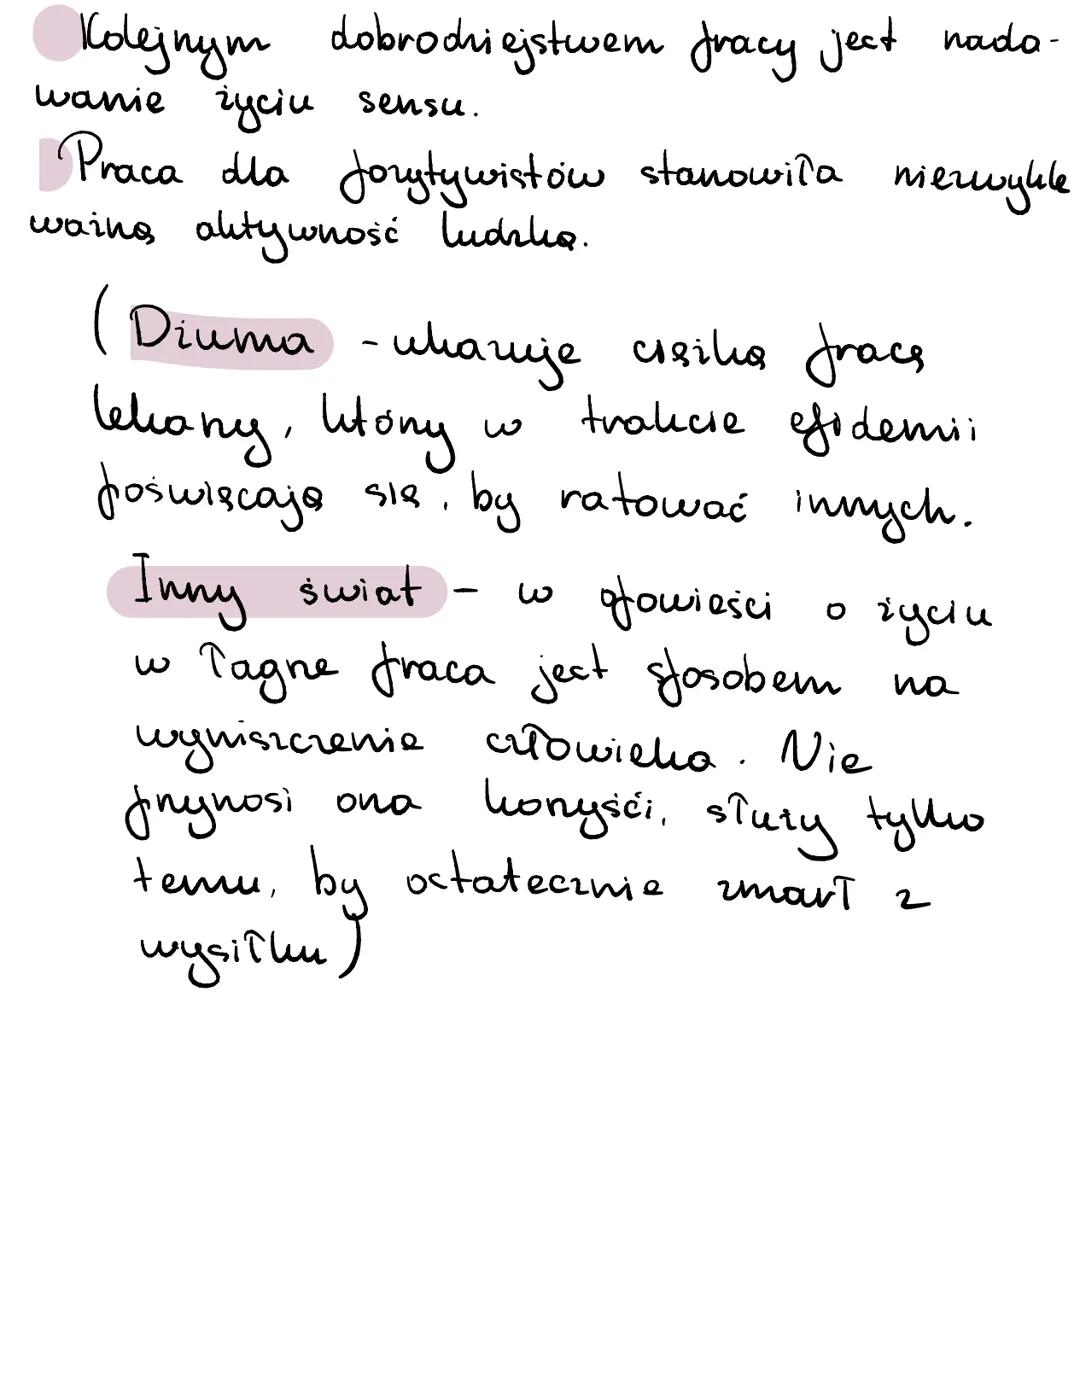 Kolejnym dobrodziejstwem pracy jest nada-
wanie życiu sensu.
Praca dla pozytywistów stanowiła niezwykle
ważną aktywność ludzką.
(Dżuma - ukazuje ciężką pracę
lekarzy, którzy w trakcie epidemii
poświęcają się, by ratować innych.
Inny świat - w opowieści o życiu
w łagrze praca jest sposobem na
wyniszczenie człowieka. Nie
przynosi ona korzyści, służy tylko
temu, by ostatecznie zmarł z
wysiłku)